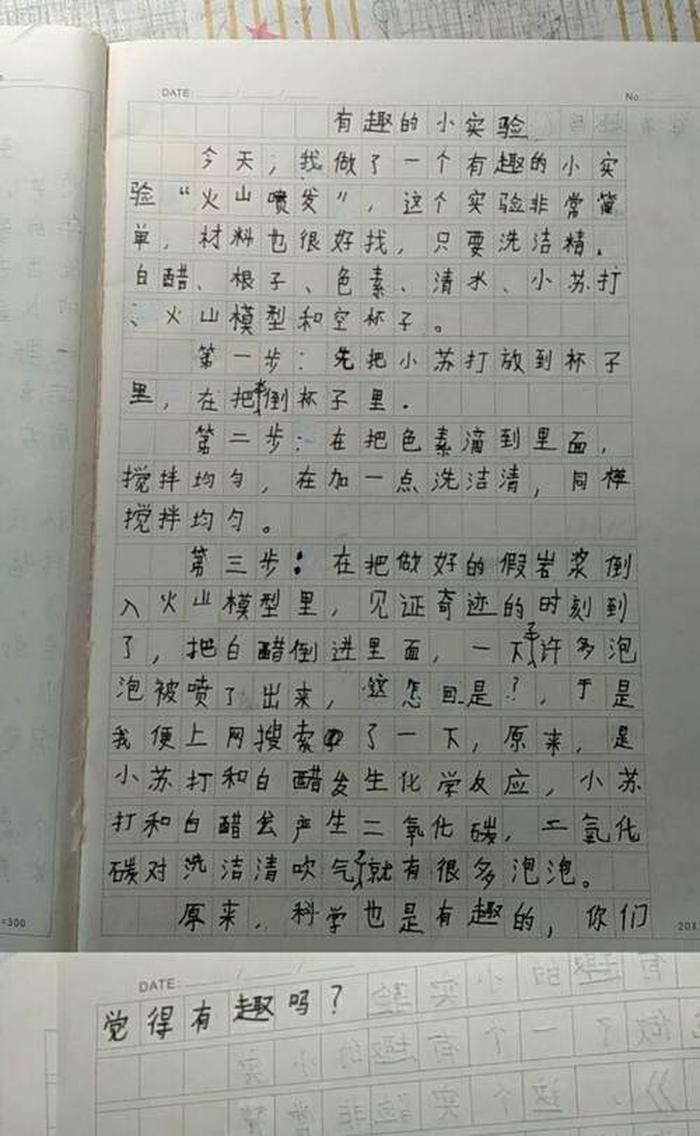 DATE: No
有趣的小实验
今天，我做了一个有趣的小实
验“火山喷发”，这个实验非常简
单，材料也很好找，只要洗洁精、
白醋、根子、色素、清水、小苏打
、火山模型和空杯子。
第一步：先把小苏打放到杯子
里，在把水倒杯子里.
第二步：在把色素滴到里面，
搅拌均匀，在加一点洗洁清，同样
搅拌均匀。
第三步：在把做好的假岩浆倒
入火山模型里，见证奇迹的时刻到
了，把白醋倒进里面，一下子许多泡
泡被喷了出来，这怎回是？，于是
我便上网搜索了一下，原来，是
小苏打和白醋发生化学反应，小苏
打和白醋会产生二氧化碳，二氧化
碳对洗洁清吹气了就有很多泡泡。
原来，科学也是有趣的，你们
=300
20X
DATE:
觉得有趣吗？